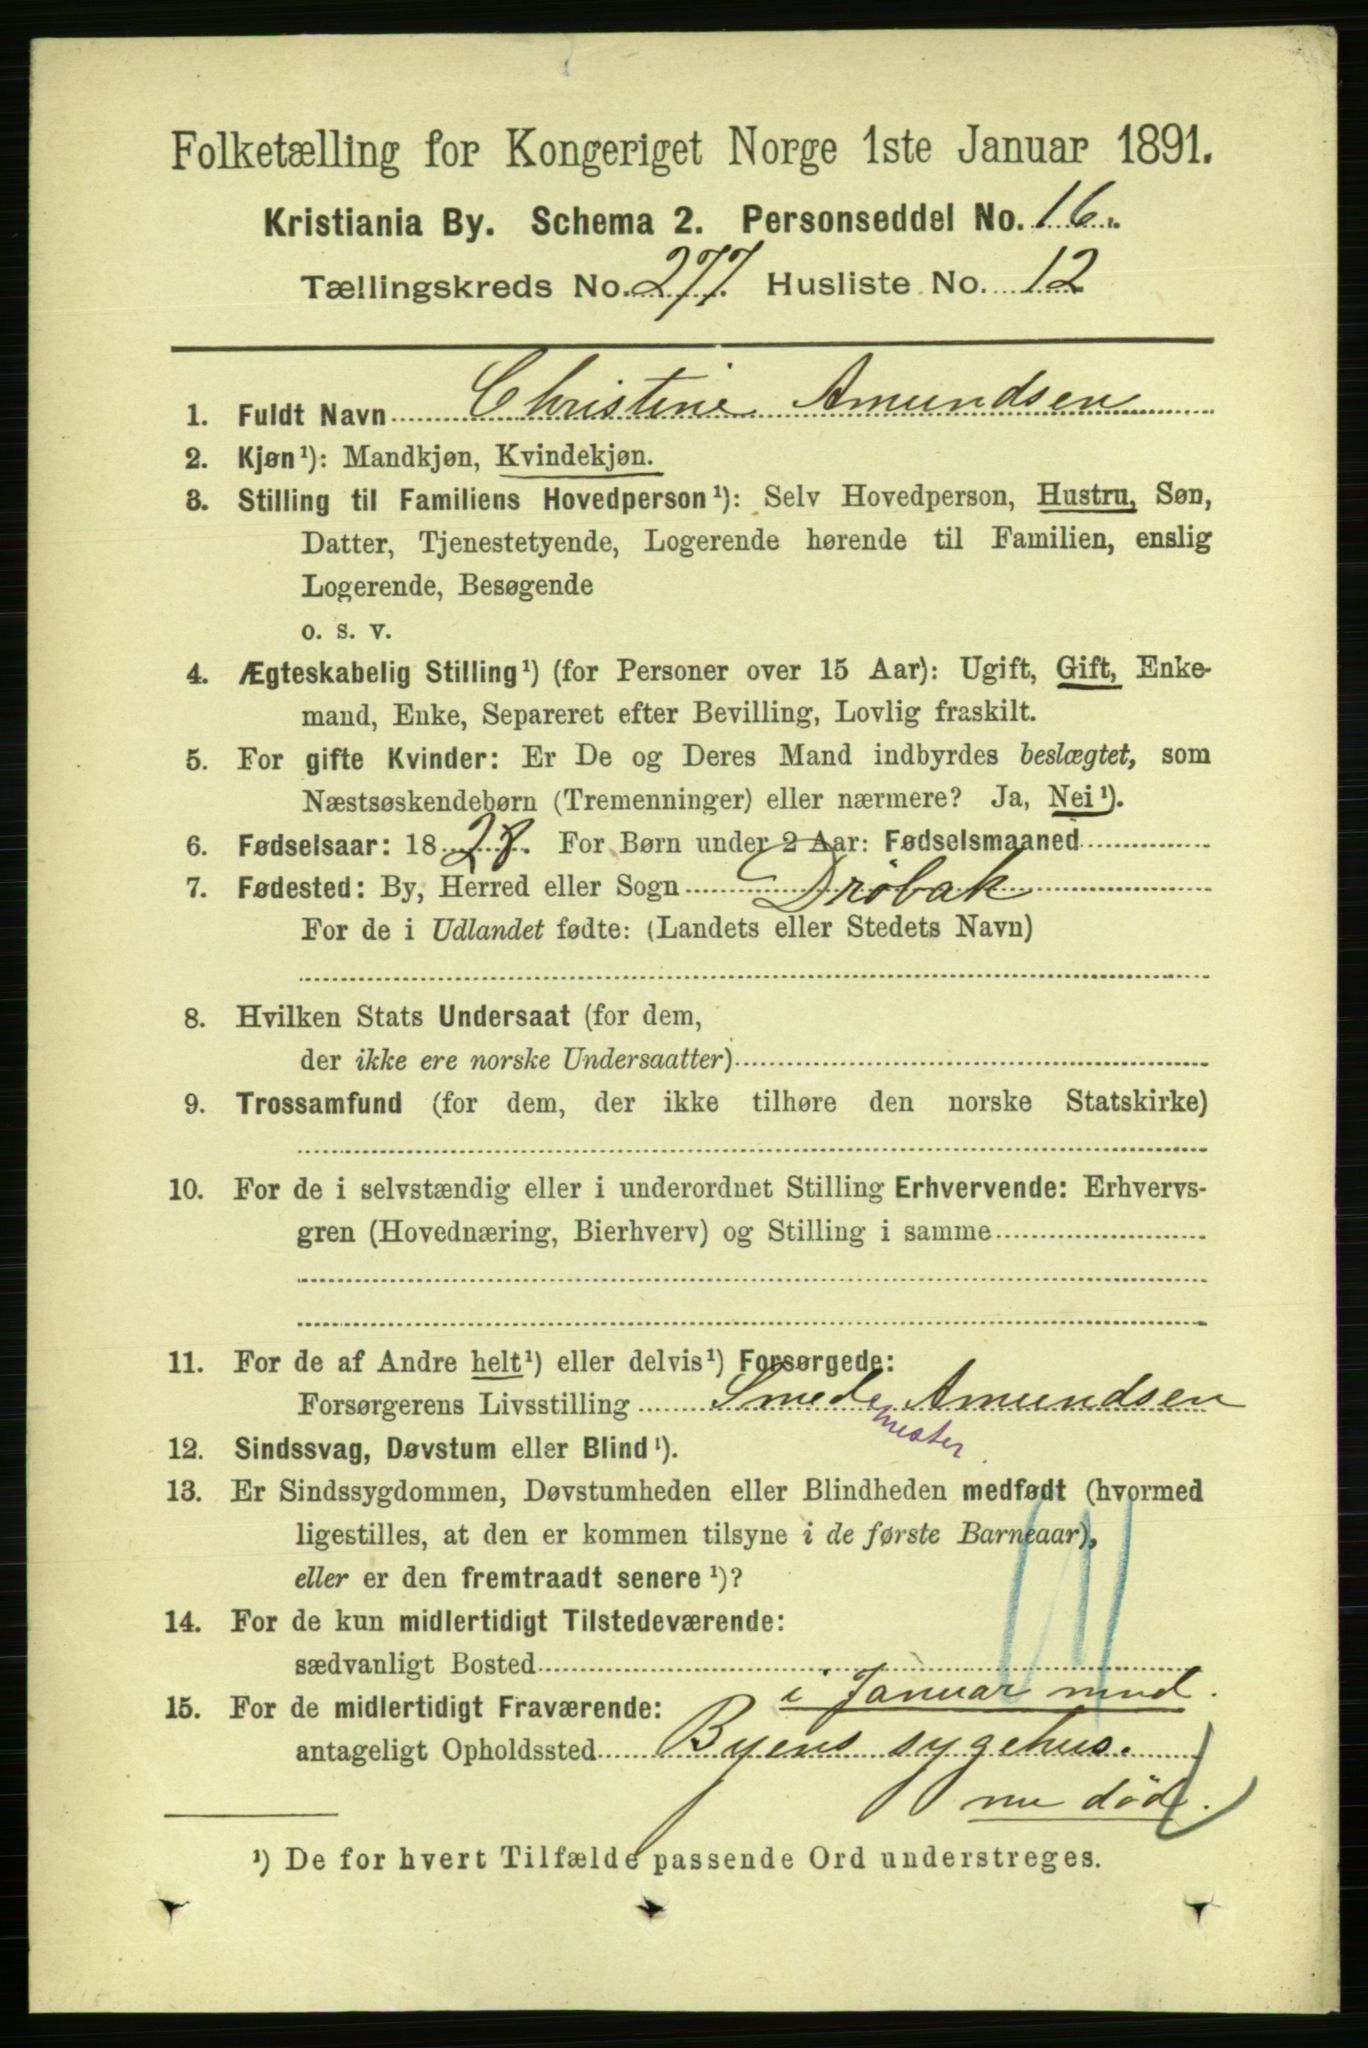 Folketælling for Kongeriget Norge 1ste Januar 1891.
Kristiania By. Schema 2. Personseddel No. 16.
Tællingskreds No. 277. Husliste No. 12
1. Fuldt Navn Christine Amundsen
2. Kjøn¹): Mandkjøn, Kvindekjøn.
3. Stilling til Familiens Hovedperson¹): Selv Hovedperson, Hustru, Søn,
Datter, Tjenestetyende, Logerende hørende til Familien, enslig
Logerende, Besøgende
o. s. v.
4. Ægteskabelig Stilling¹) (for Personer over 15 Aar): Ugift, Gift, Enke-
mand, Enke, Separeret efter Bevilling, Lovlig fraskilt.
5. For gifte Kvinder: Er De og Deres Mand indbyrdes beslægtet, som
Næstsøskendebørn (Tremenninger) eller nærmere? Ja, Nei¹).
6. Fødselsaar: 1828. For Børn under 2 Aar: Fødselsmaaned
7. Fødested: By, Herred eller Sogn Drøbak
For de i Udlandet fødte: (Landets eller Stedets Navn)
8. Hvilken Stats Undersaat (for dem,
der ikke ere norske Undersaatter)
9. Trossamfund (for dem, der ikke tilhøre den norske Statskirke)
10. For de i selvstændig eller i underordnet Stilling Erhvervende: Erhvervs-
gren (Hovednæring, Bierhverv) og Stilling i samme
11. For de af Andre helt¹) eller delvis¹) Forsørgede:
Forsørgerens Livsstilling Smed Amundsen
mester.
12. Sindssvag, Døvstum eller Blind¹).
13. Er Sindssygdommen, Døvstumheden eller Blindheden medfødt (hvormed
ligestilles, at den er kommen tilsyne i de første Barneaar),
eller er den fremtraadt senere¹)?
14. For de kun midlertidigt Tilstedeværende:
sædvanligt Bosted
i Januar mnd.
15. For de midlertidigt Fraværende:
antageligt Opholdssted Byens sygehus.
nu død.
¹) De for hvert Tilfælde passende Ord understreges.